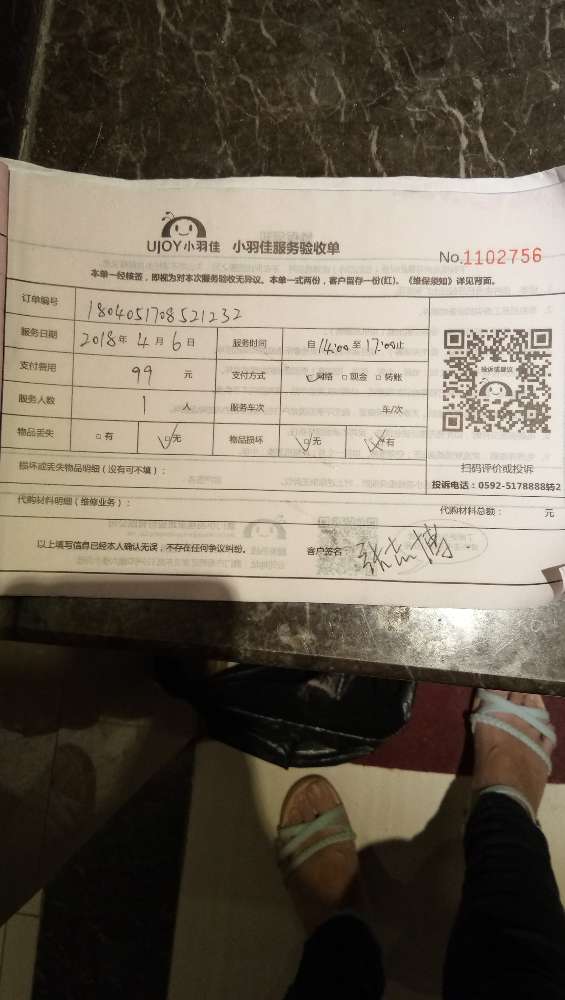 UJOY小羽佳 小羽佳服务验收单
No.1102756
本单一经核签，即视为对本次服务验收无异议。本单一式两份，客户留存一份(红)。《维保须知》详见背面。
订单编号 1804051708521232
服务日期 2018年4月6日 服务时间 自14:00至17:00止
支付费用 99元 支付方式 网络 □现金 □转账
服务人数 1人 服务车次 车/次
物品丢失 □有 无 物品损坏 无 有
投诉或建议
扫码评价或投诉
投诉电话：0592-5178888转2
损坏或丢失物品明细（没有可不填）：
代购材料明细（维修业务）： 代购材料总额： 元
以上填写信息已经本人确认无误，不存在任何争议纠纷。 客户签名： 张志博